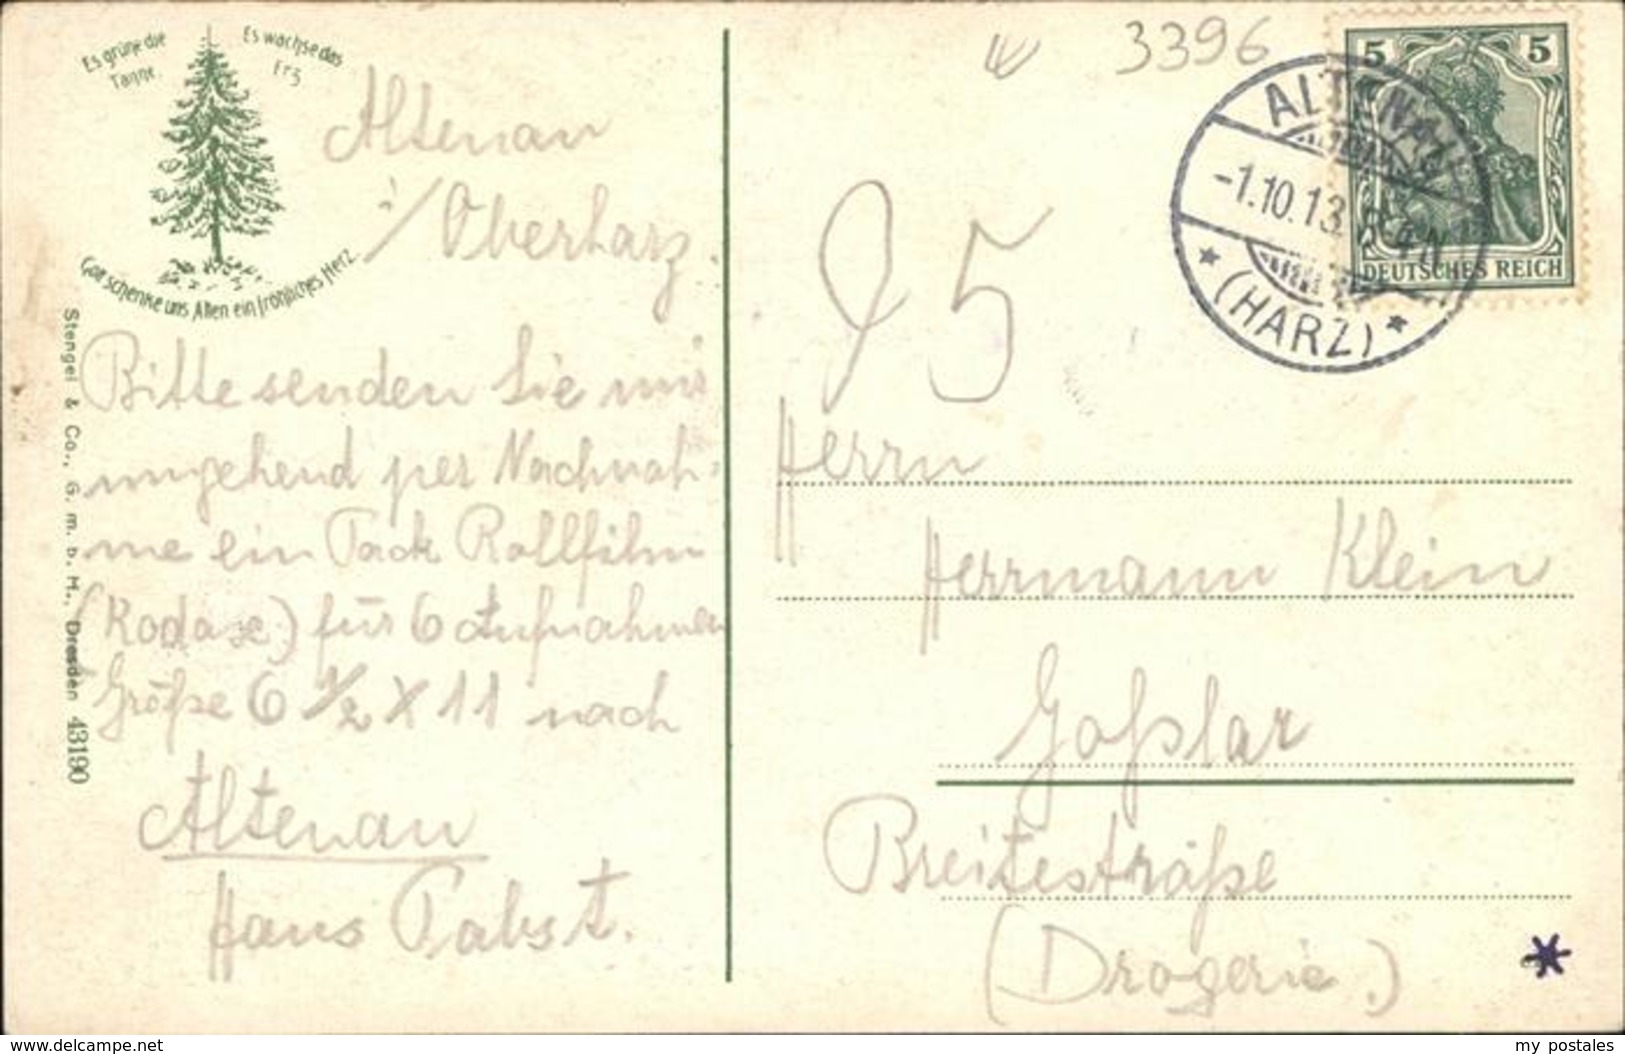 Es grüne die
Tanne
Es wachse das
Erz
Gott schenke uns Allen ein fröhliches Herz.
Stengel & Co., G. m. b. H., Dresden 43190
Altenau
i/Oberharz.
Bitte senden Sie mir
umgehend per Nachnah-
me ein Pack Rollfilm
(Kodak) für 6 Aufnahmen
Größe 6 1/2 X 11 nach
Altenau
Hans Pabst.
3396
5 5
DEUTSCHES REICH
ALTENAU
-1.10.13.
* (HARZ) *
95
Herrn
Herrmann Klein
Goßlar
Breitestraße
(Drogerie.)
www.delcampe.net
my_postales